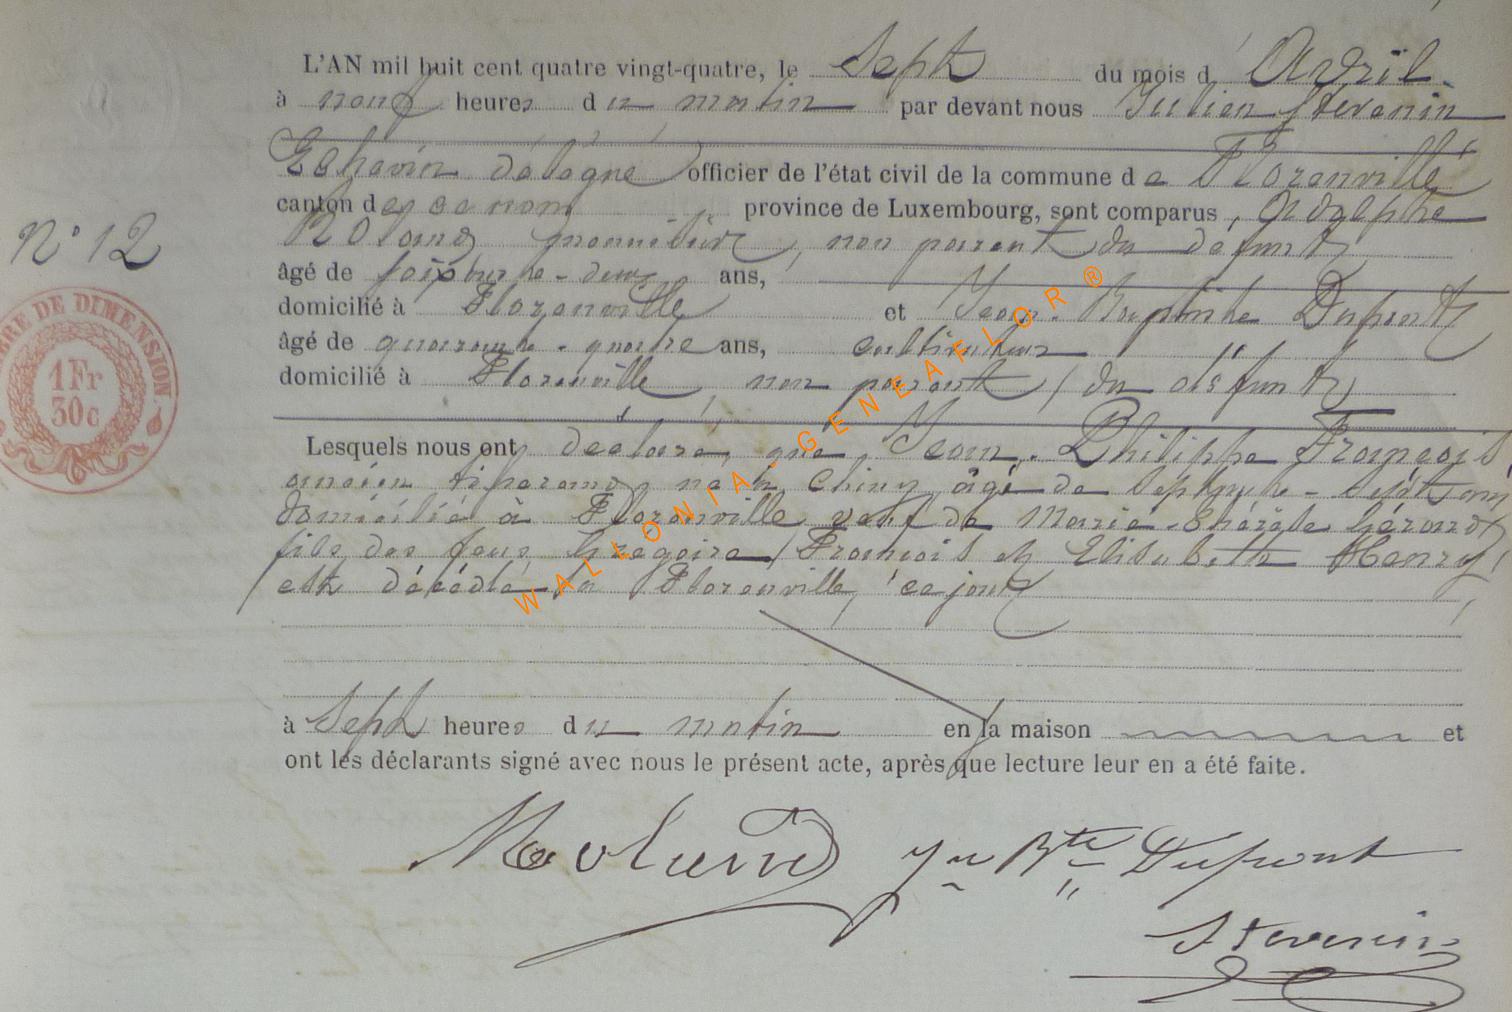 L'AN mil huit cent quatre vingt-quatre, le Sept du mois d'Avril
à neuf heures du matin par devant nous Julien Stevenin
Echevin délégué officier de l'état civil de la commune de Florenville
canton de ce nom province de Luxembourg, sont comparus, Adolphe
N° 12
Roland, non parent du défunt,
âgé de soixante-deux ans,
domicilié à Florenville et Jean-Baptiste Dupont
âgé de quarante-quatre ans, cultivateur
domicilié à Florenville, non parent du défunt
TIMBRE DE DIMENSION
1Fr
30c
Lesquels nous ont déclaré, que, Jean-Philippe François
ancien né à Chiny âgé de Septante-Sept ans
domicilié à Florenville veuf de Marie-Thérèse Gérard
fils des feus Grégoire François et Elisabeth Henry
est décédé à Florenville, ce jour
à Sept heures du matin en la maison et
ont les déclarants signé avec nous le présent acte, après que lecture leur en a été faite.
Roland Jn Bte Dupont
Stevenin
WALLONIA-GENEAFLOR®